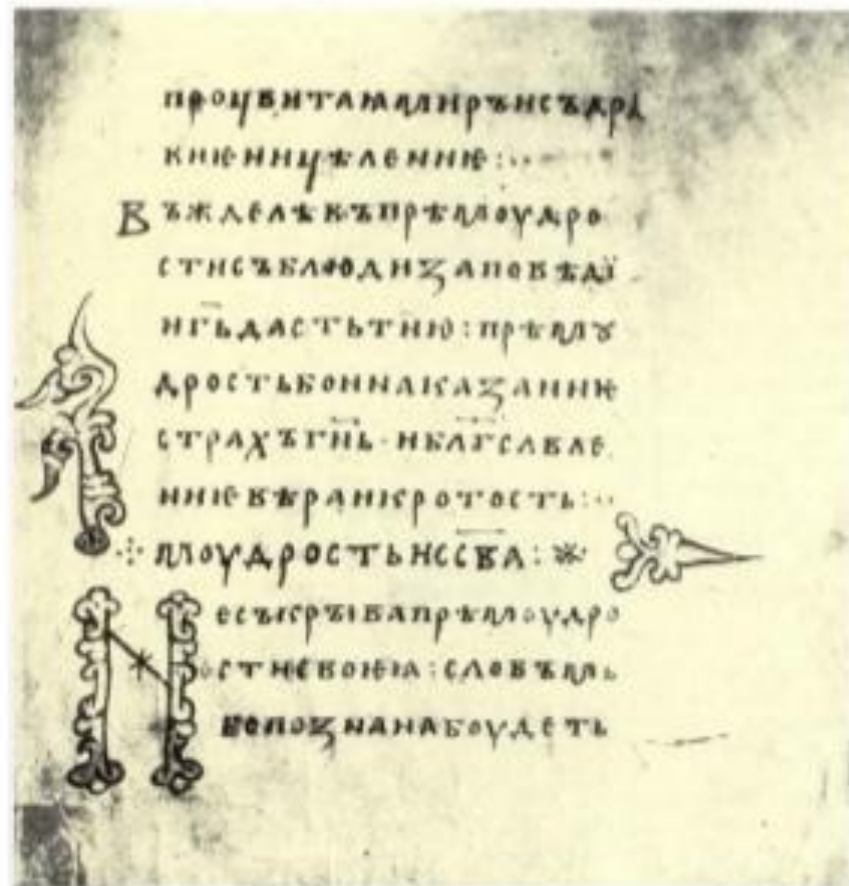 процвитамꙗмиръисъдра
книѥицѣлениѥ:··
Въжделѣкъпрѣмоудро
стисъблюдизаповѣдї
игь҃дастьтию:прѣмꙋ
дростьбоинаказаниѥ
страхъгн҃ь·иблаг҃савле
ниѥвѣраикротость:··
⁘моудростьисс҃ва:※
Несъкрꙑвапрѣмоудро
стисвоѥꙗ:словъмь
бопознанабоудеть